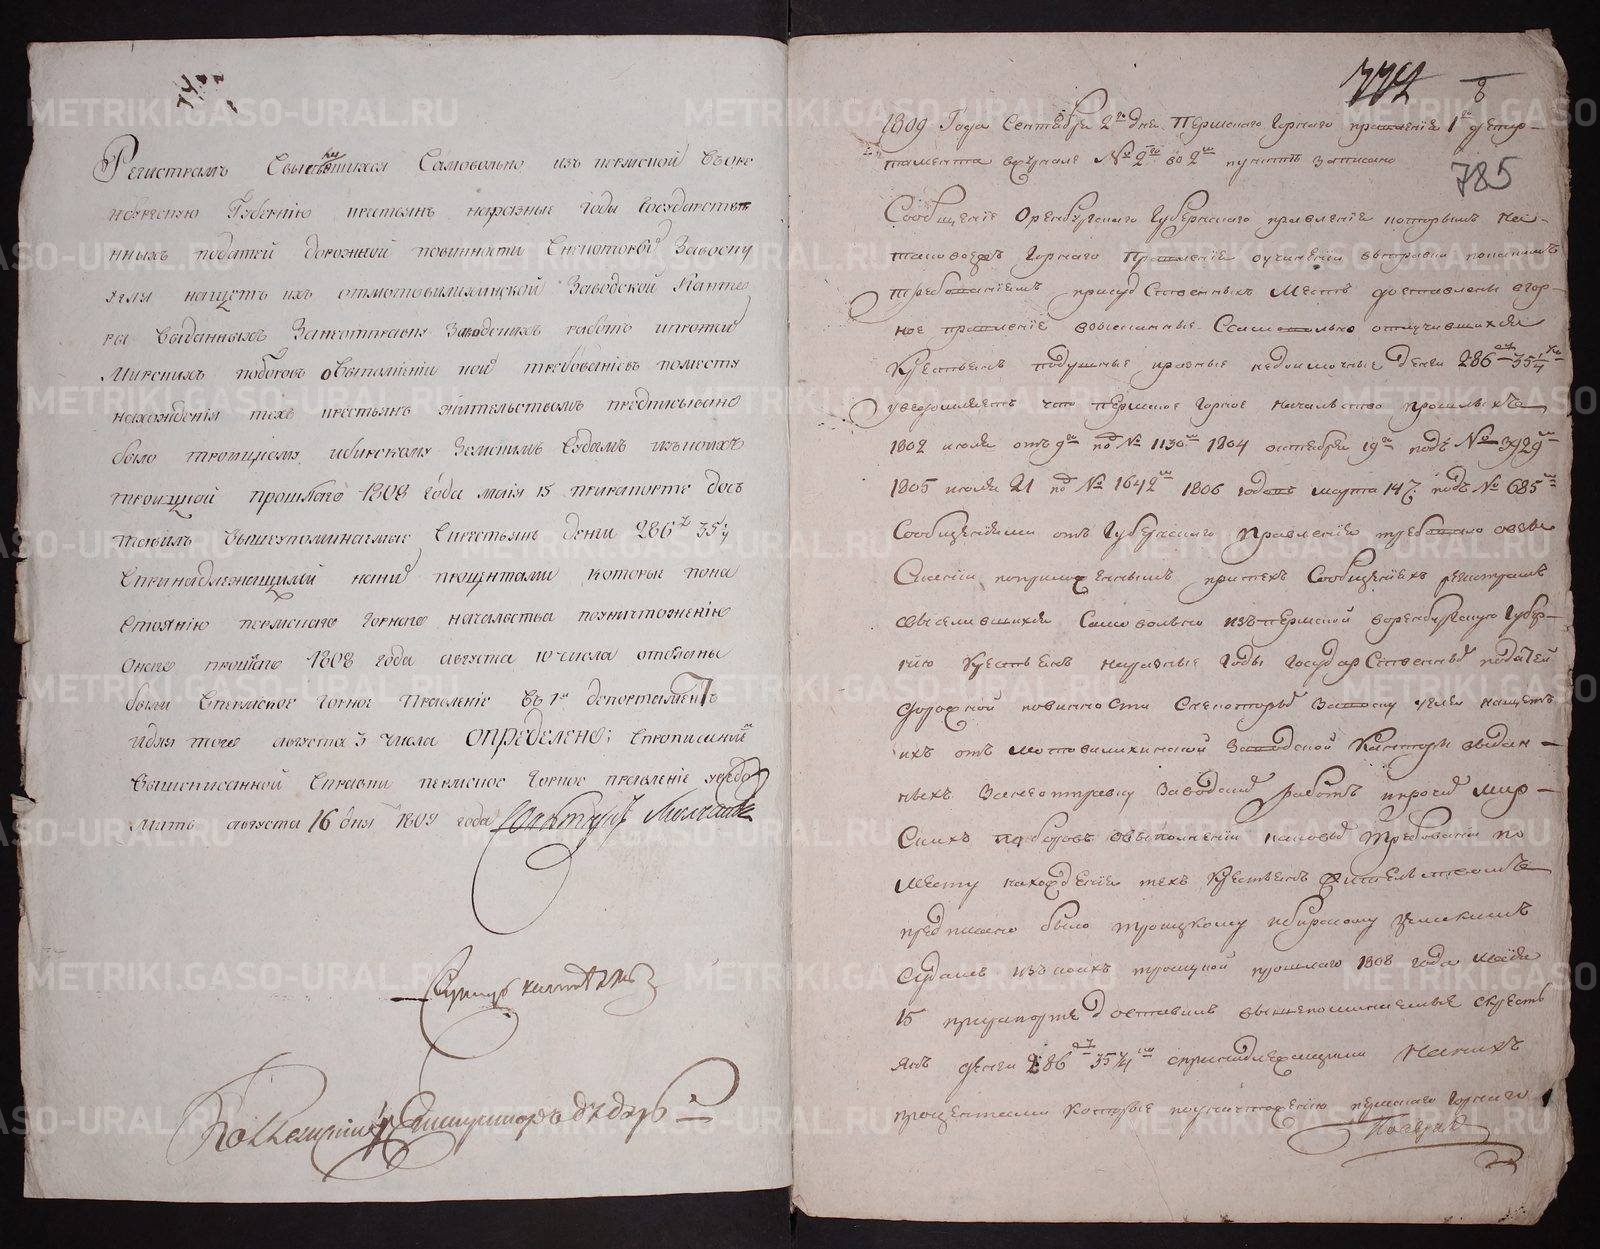 Регистрамъ Свы шихся Самовольно изъ пермской въ орен
бургскую Губернію крестьянъ на разные годы Государствен
ныхъ податей дорожной повинности Снекоторой Завозку
угля нащетъ ихъ отмотовилихинской Заводской Канто
ры выданныхъ Заneотправку Заводскихъ работъ ипротчей
Мирскихъ поборовъ овыполненіи кой требованіевъ поместу
нахожденія техъ крестьянъ жительствомъ предписывано
было троицкому ибирскому Земскимъ Судамъ изъкоихъ
троицкой прошлаго 1808 года маія 15 прирапорте дос
тавилъ вышеупоминаемые Скрестьянъ денги 286 35
Спринадлежащими нани процентами которые пона
стоянію пермскаго Горнаго начальства поуничтоженію
Онаго прошлаго 1808 года августа 10 числа отосланы
были впермское Горное Правленіе въ 1й департаментъ
идля того августа 3 числа ОПРЕДЕЛЕНО; Спрописаніемъ
вышеписанной Справки пермское Горное правленіе уведо
мить августа 16 дня 1809 года
772 8
1809 Года Сентября 2го дня Пермскаго Горнаго правленія 1го депар-
тамента вжурнале № 2го во 2м пункте записано
785
Сообщеніе Оренбургскаго Губернскаго правленія которымъ на-
таковоежъ Горнаго Правленія оучиненіи выправки покакимъ
требованіямъ присудственныхъ Местъ доставлены вгор-
ное правленіе взысканные Ссамовольно отлучившихся
Крестьянъ подушные и разные недоимочные денги 286 35 1/4
уведомляетъ что пермское Горное Начальство прошлыхъ
1802 июля отъ 9го по № 1130м 1804 октября 19го подъ № 3929м
1805 июля 21 по № 1642м 1806 годовъ марта 14 подъ № 685м
Сообщеніями отъ Губернскаго Правленія требовало овзы
Сканіи поприложеннымъ притехъ Сообщеніяхъ регистрамъ
свыселившихся Самовольно изъпермской воренбургскую Губер-
нію Крестьянъ наразные Годы Государственныхъ податей
дорожной повинности Снекоторыхъ Завозку углей нащетъ
ихъ отъ мотовилихинской Заводской Канторы выдан-
ныхъ Занеотправку Заводскихъ работъ ипротчей мир-
Скихъ поборовъ овыполненіи каковыхъ требованіи по
месту нахожденія техъ крестьянъ жительствомъ
предписано было троицкому ибирскому земскимъ
Судамъ изъкоихъ троицкой прошлаго 1808 года маія
15 прирапорте доставилъ вышепоминаемые скресть
янъ денги 286 35 1/4 спринадлежащими наnихъ
процентами которые поуничтоженію пермскаго Горнаго